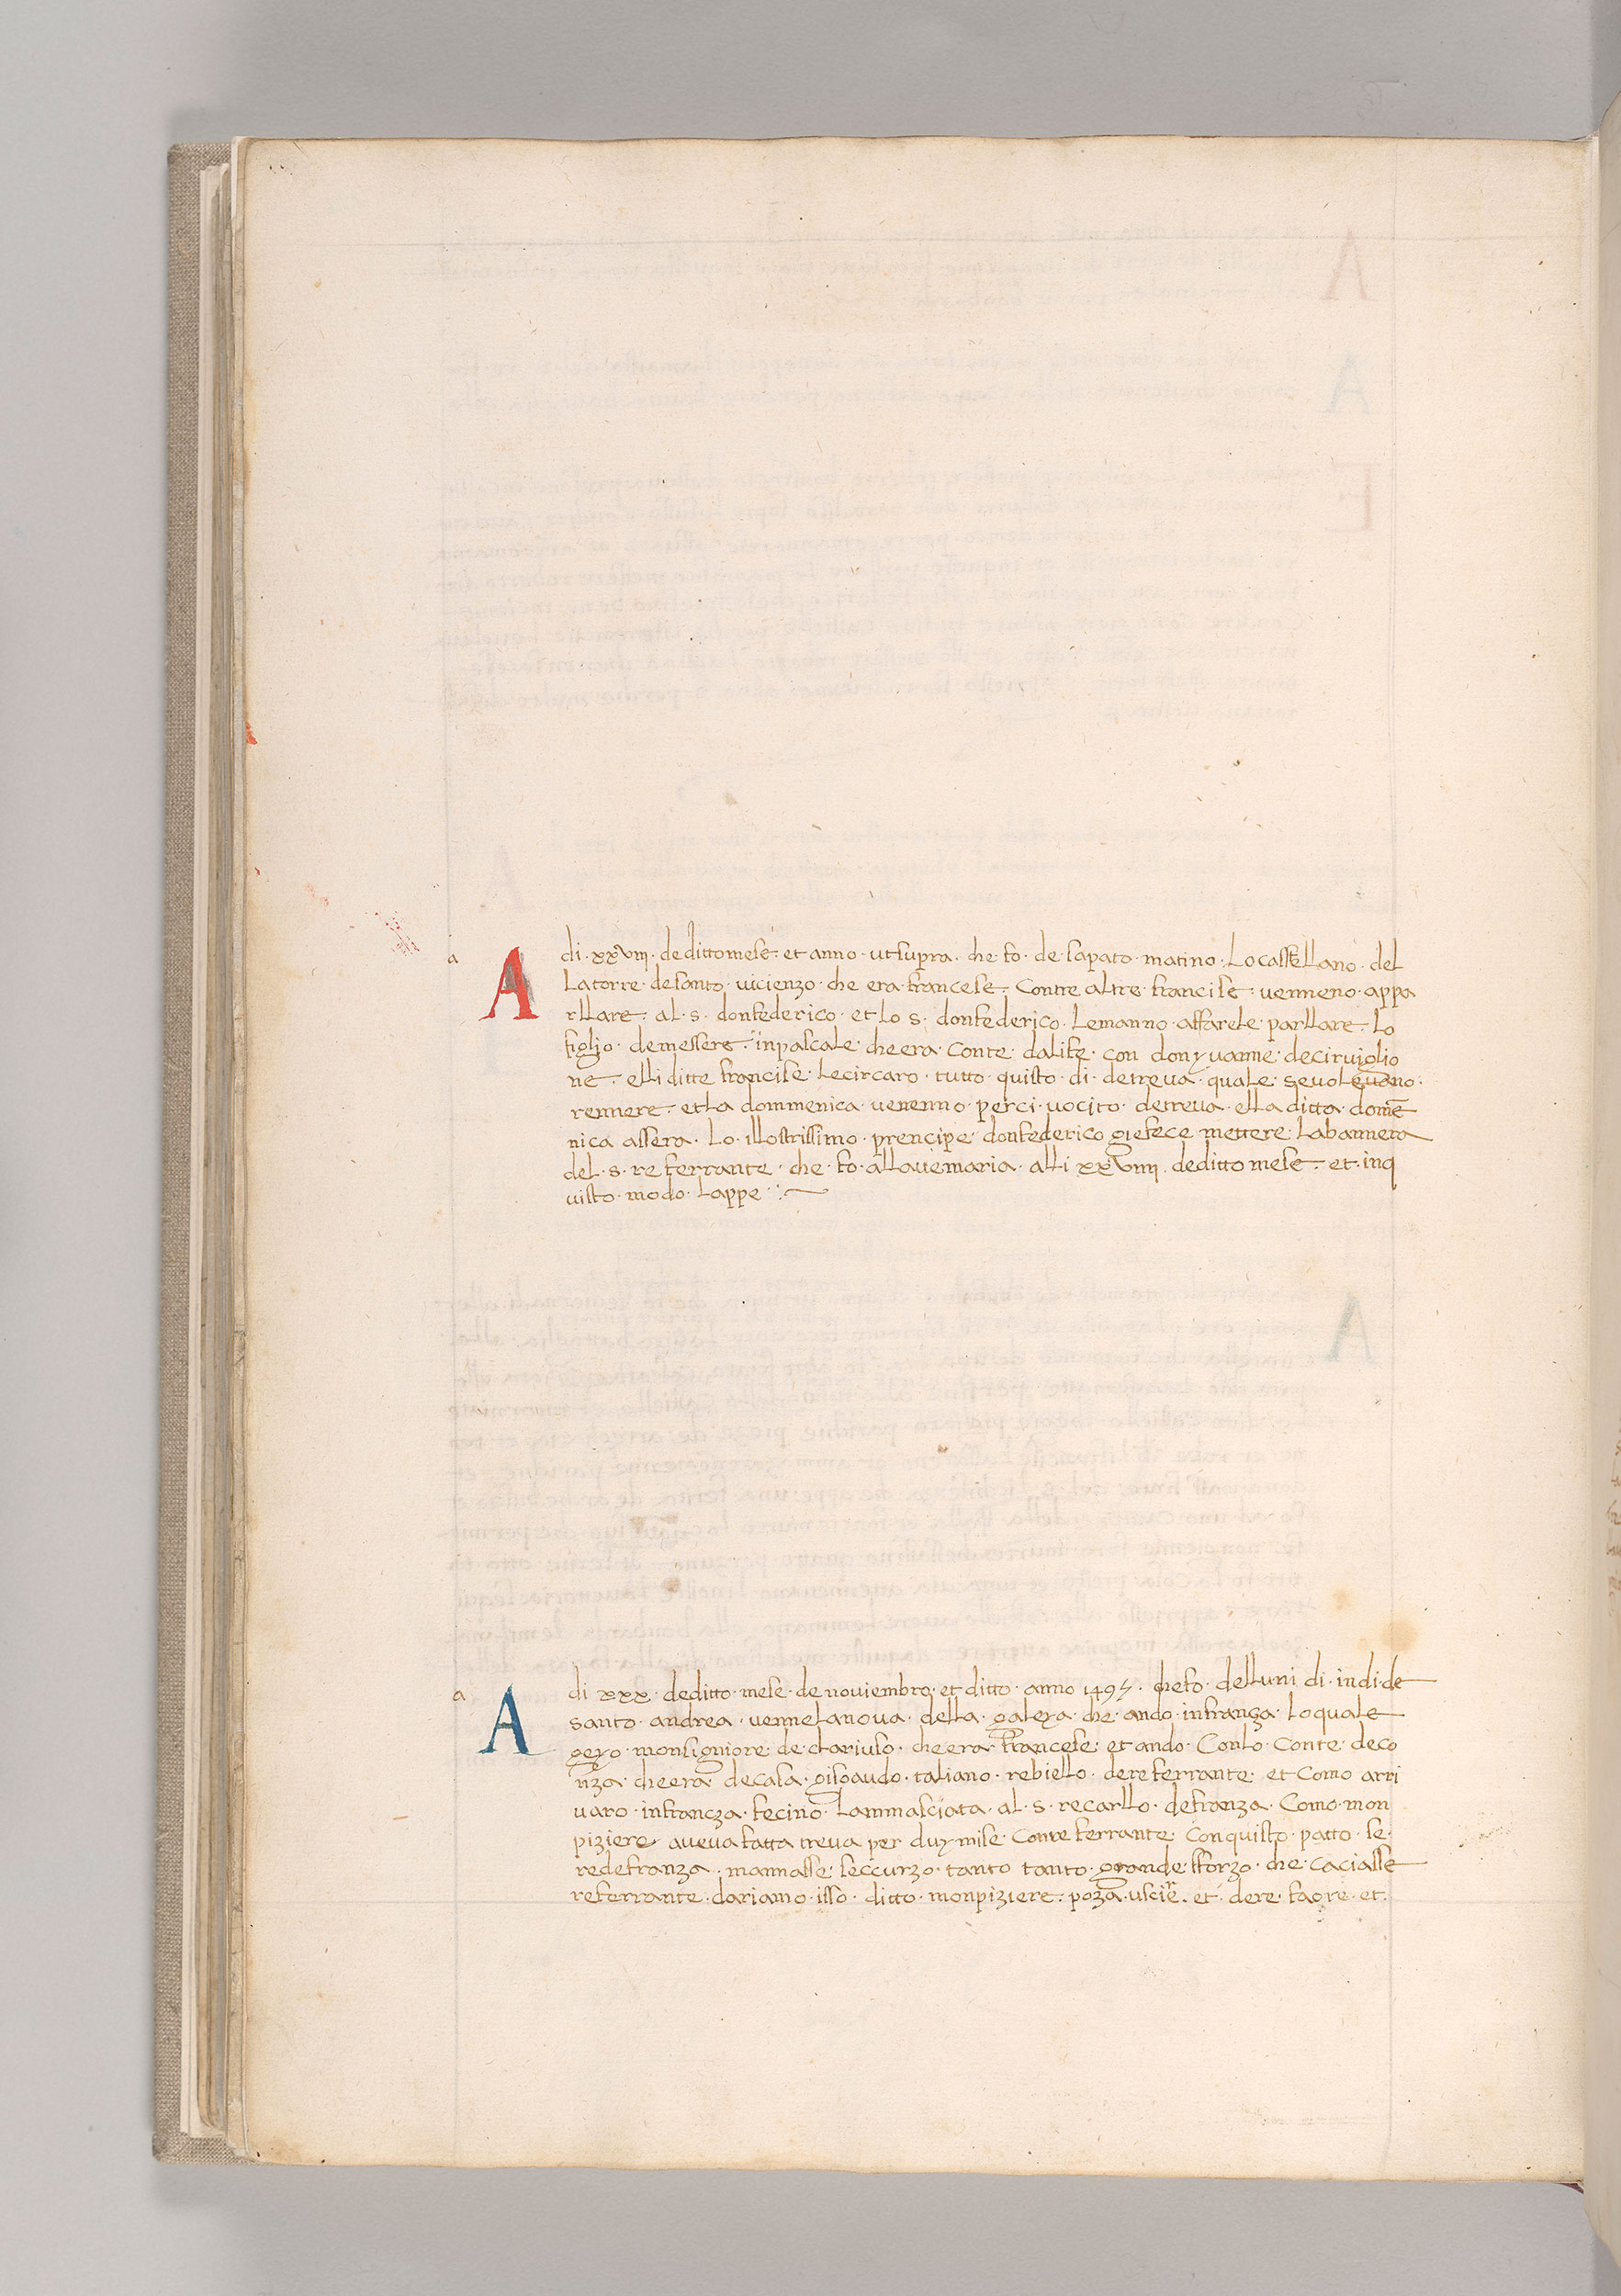 a
A di · xxviii · de ditto mese · et anno · ut supra · che fo · de sapato · matino · Lo castellano · del
La torre · de santo · vicienzo · che era francese · Contre altre · francise · venneno · appa
rllare · al · s · don federico · et lo s · don federico · Lemanno · affarele · parllare · lo
figlio · de messere · inpascale · che era · Conte · dalife · con don yuanne · decirviglio
ne · elli ditte francise · lecircaro · tutto · quisto · di · de treva · quale · se voleuano ·
rennere · et la dommenica · venenno · perci · vocito · de treva · ella ditta · domē
nica assera · Lo · illostrissimo · prencipe · don federico giefece mettere · labannera
del · s · re ferrante · che · fo · allavemaria · alli xxviiii · de ditto mese · et · inq
uisto · modo · lappe
a
A di xxx · de ditto · mese · de noviembro · et ditto · anno 1495 · che fo · delluni di · indi · de
santo · andrea · venne la nova · della · galeza · che · ando · infranza · lo quale
gezo · monsigniore · de clariuso · che era francese · et ando · Con lo · Conte · de co
nza · che era · de casa · gisoaudo · taliano · rebiello · de re ferrante · et Como arri
uaro · infrancza · fecino · lammasciata · al · s · re carllo · de franza · Como · mon
piziere aveva fatta treva per duy mise · Con re ferrante · Con quisto · patto · se ·
re de franza · mannasse · seccurzo · tanto tanto · grande · sforzo · che · caciasse
re ferrante · dariamo · isso · ditto · monpiziere · poza · uscire · et · dere · faore · et ·